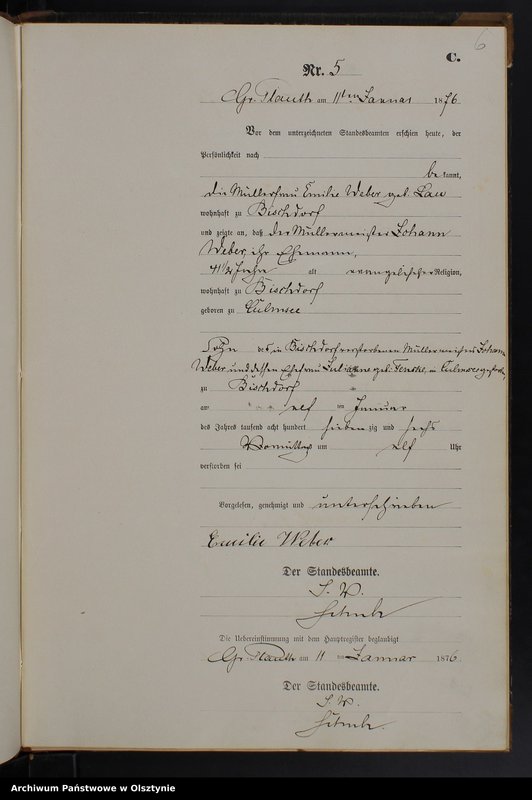 6
C.
Nr. 5
Gr. Plauth am 11ten Januar 1876
Vor dem unterzeichneten Standesbeamten erschien heute, der
Persönlichkeit nach
be kannt,
die Müllerfrau Emilie Weber geb. Lau
wohnhaft zu Bischdorf
und zeigte an, daß der Müllermeister Johann
Weber, ihr Ehemann,
41 1/2 Jahre alt evangelischer Religion,
wohnhaft zu Bischdorf
geboren zu Culmsee
Sohn des in Bischdorf verstorbenen Müllermeisters Johann
Weber und dessen Ehefrau geb. in Culmsee
zu Bischdorf
am elf ten Januar
des Jahres tausend acht hundert sieben zig und sechs
Vormittags um elf Uhr
verstorben sei
Vorgelesen, genehmigt und unterschrieben
Emilie Weber
Der Standesbeamte.
I. V.
Die Uebereinstimmung mit dem Hauptregister beglaubigt
Gr. Plauth am 11 ten Januar 1876.
Der Standesbeamte.
I. V.
Archiwum Państwowe w Olsztynie